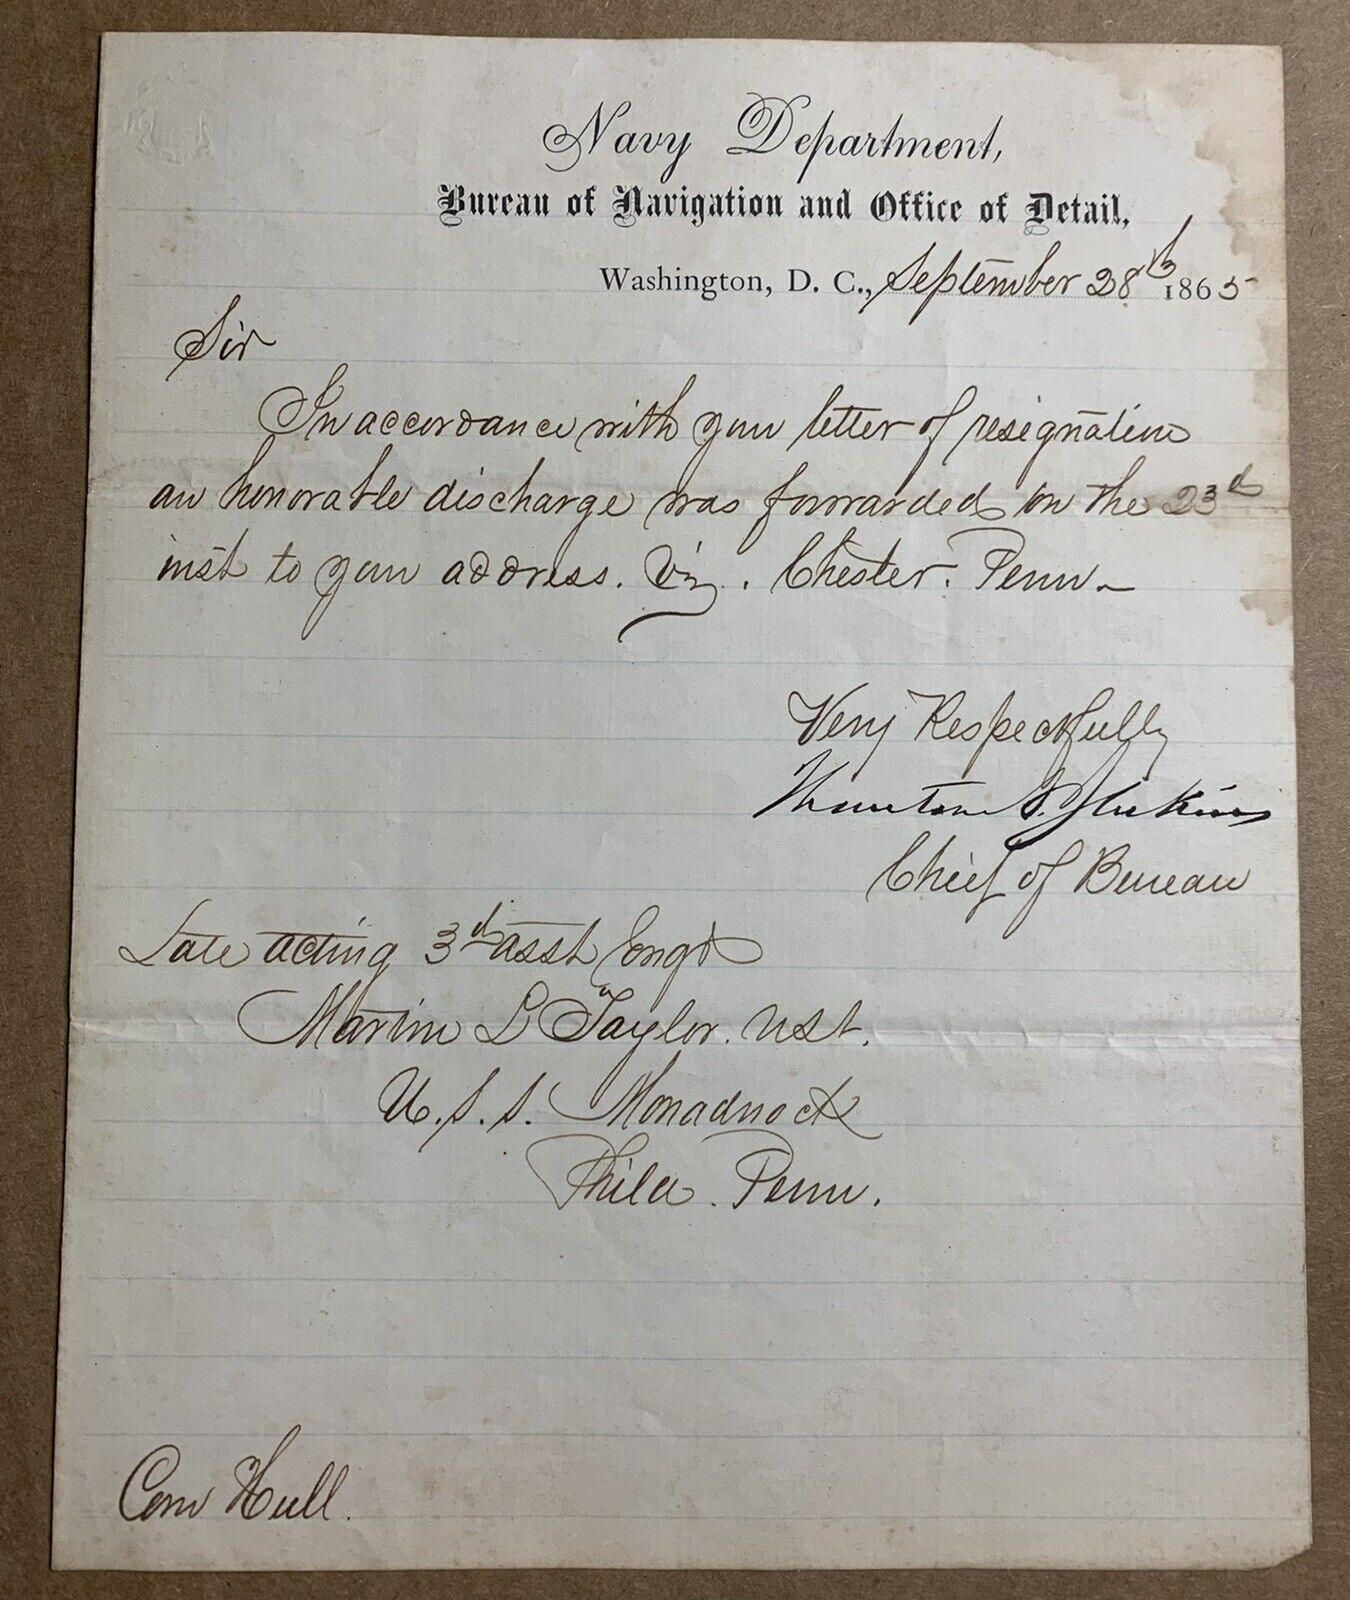 Navy Department,
Bureau of Navigation and Office of Detail,
Washington, D. C., September 28th 1865
Sir
In accordance with your letter of resignation
an honorable discharge was forwarded on the 23d
inst to your address. Viz. Chester. Penn.
Very Respectfully
Thornton A. Jenkins
Chief of Bureau
Late acting 3d asst Engr
Martin L Taylor. U.S.N.
U.S.S. Monadnock
Phila. Penn.
Com Hull.